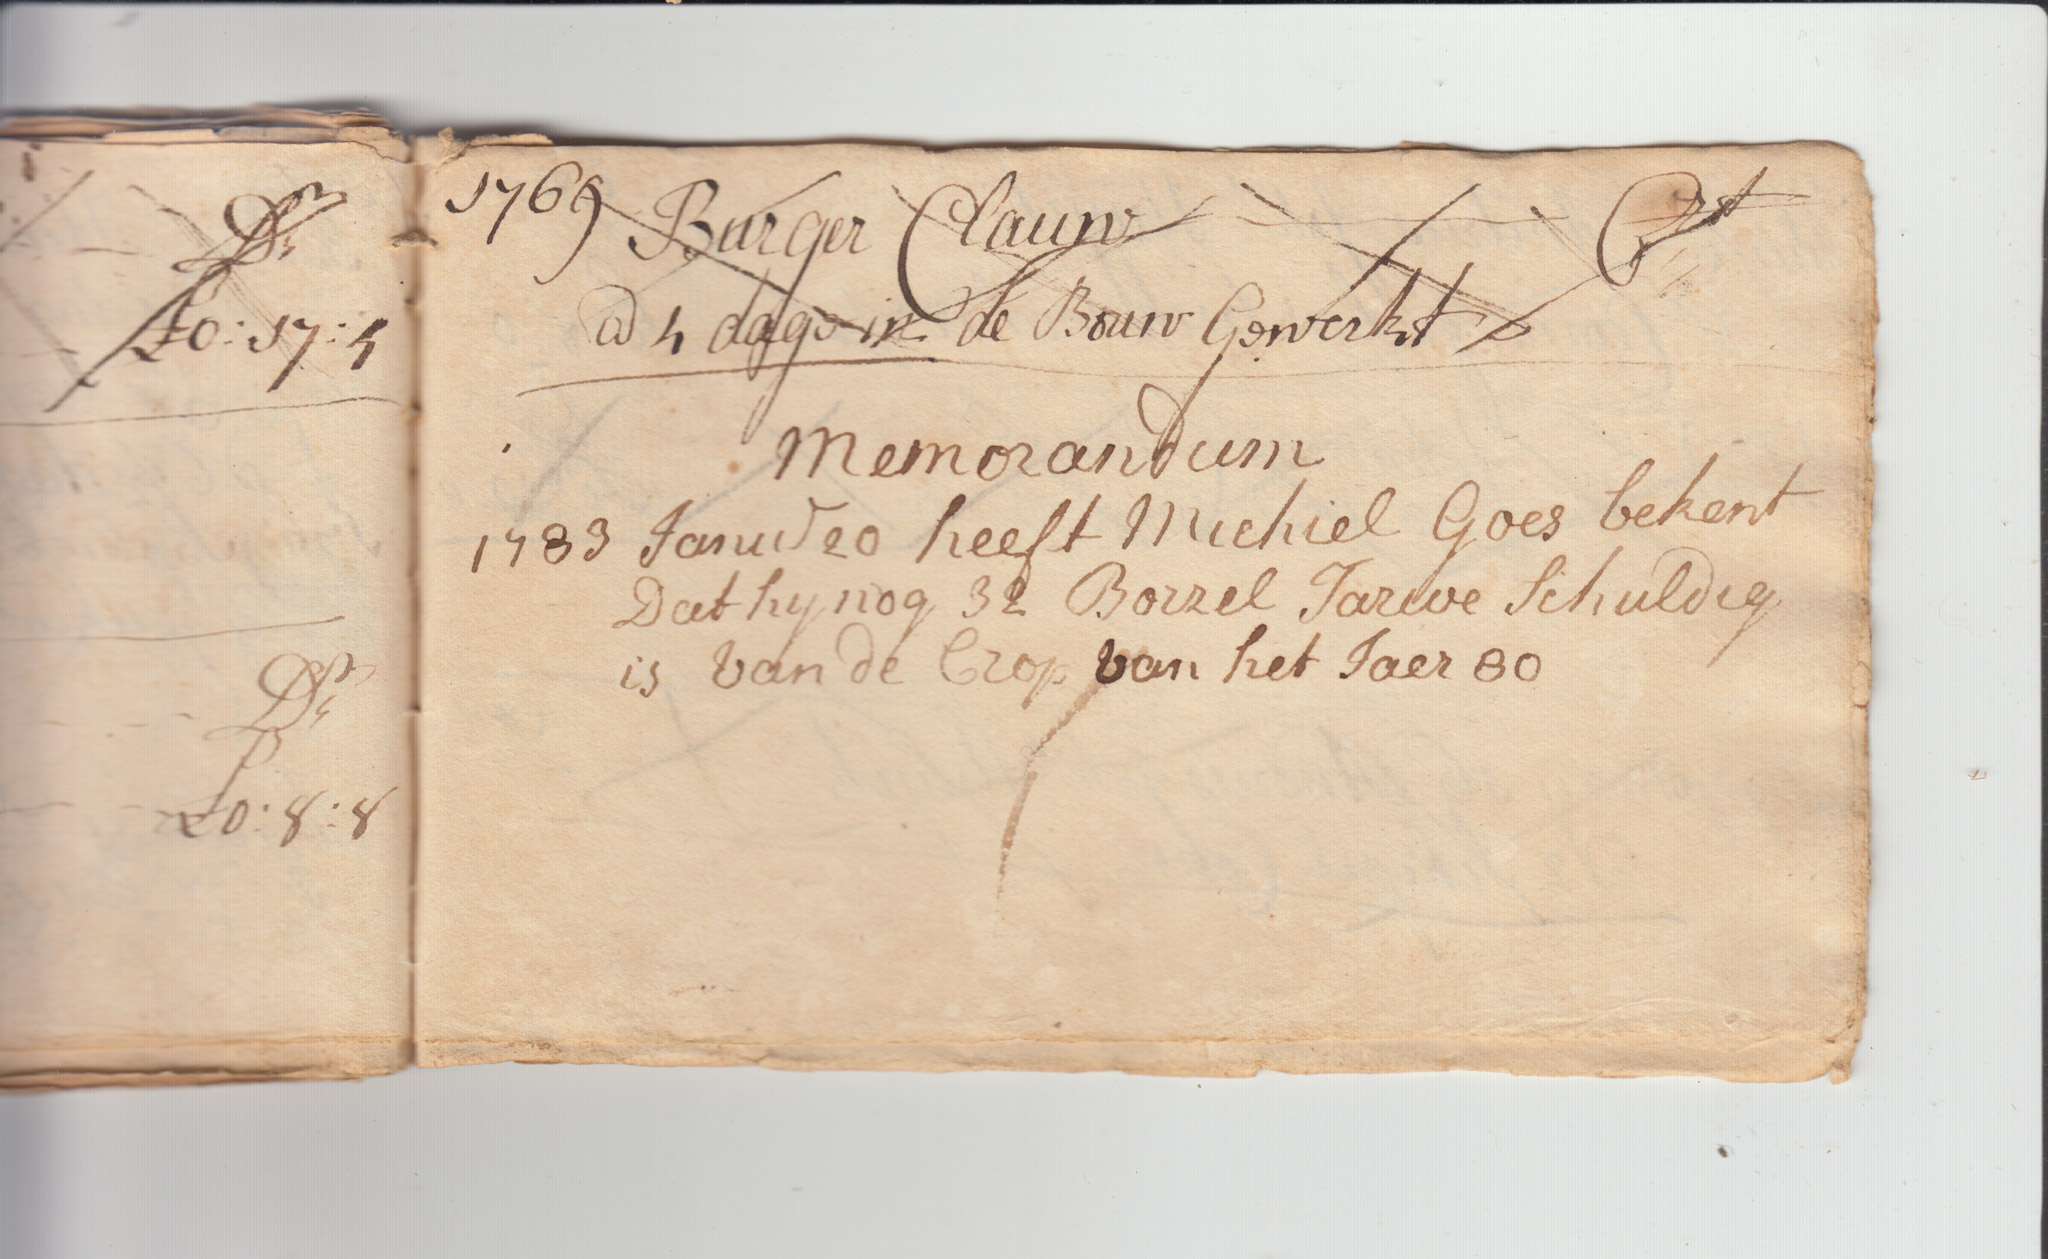 Dr
£0:17:5
Dr
£0:8:8
1769 Burger Clauw Crt
a 4 dage in de Bouw Gewerkt
Memorandum
1783 Janud 20 heeft Michiel Goes bekent
Dat hy nog 32 Borzel Tarwe Schuldig
is van de Crop van het Jaer 80